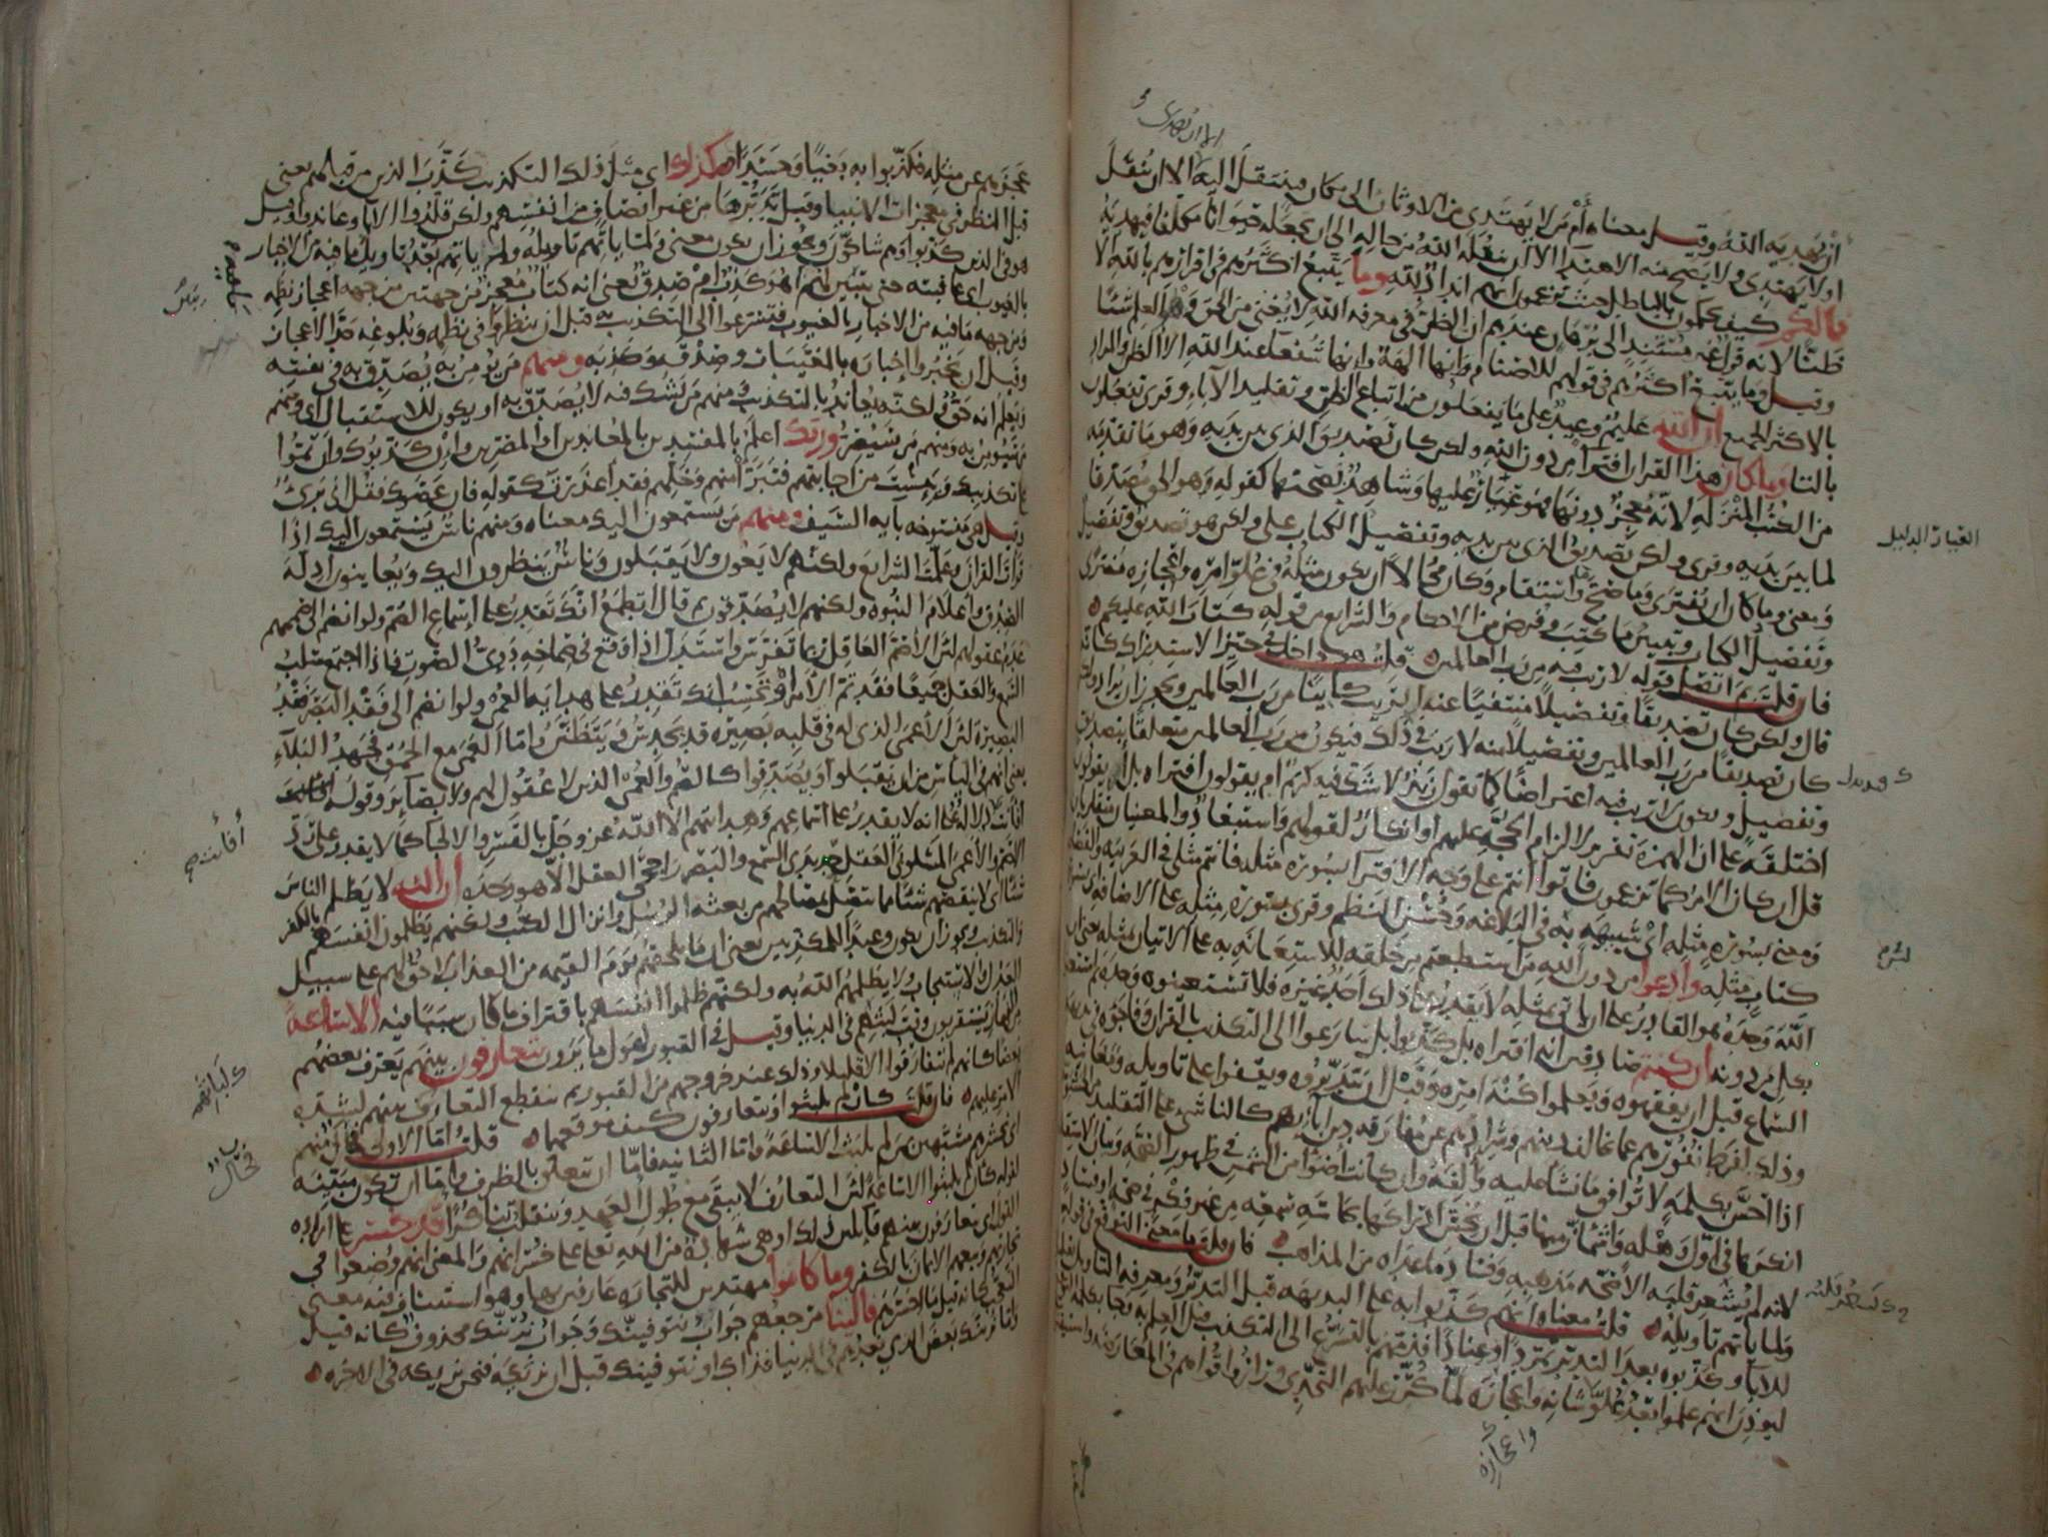 الا ان يهدى
ان يهديه الله وقيل معناه أم من لا يهتدي من الاوثان الى مكان فينتقل اليه الا ان ينقل
او لا يهتدي ولا يصح منه الاهتداء الا ان ينقله الله من حاله الى ان يجعله حيوانا مكلفا فيهديه
فما لكم كيف تحكمون بالباطل حيث تزعمون انهم انداد لله وما يتبع اكثرهم في اقرارهم بالله الا
ظنا لانه قول غير مستند الى برهان عندهم ان الظن في معرفة الله لا يغني من الحق وهو العلم شيئا
وقيل وما يتبع اكثرهم في قولهم للاصنام وانها الهة وانها شفعاء عند الله الا الظن والمراد
بالاكثر الجميع ان الله عليم وعيد على ما يفعلون من اتباع الظن وتقليد الآباء وقرئ تفعلون
بالتاء وما كان هذا القران افتراء من دون الله ولكن كان تصديق الذي بين يديه وهو ما تقدمه
من الكتب المنزلة لانه معجز دونها فهو عيار عليها وشاهد لصحتها كقوله وهو الحق مصدقا
لما بين يديه وقرئ ولكن تصديق الذي بين يديه وتفصيل الكتاب على ولكن هو تصديق وتفصيل
ومعنى وما كان ان يفترى وما صح وما استقام وكان محالا ان يكون مثله في علو امره واعجازه مفترى
وتفصيل الكتاب وتبيين ما كتب وفرض من الاحكام والشرائع من قوله كتاب الله عليكم
فان قلت بم اتصل قوله لا ريب فيه من رب العالمين قلت هو داخل في حيز الاستدراك كانه
قال ولكن كان تصديقا وتفصيلا منتفيا عنه الريب كائنا من رب العالمين ويجوز ان يراد ولكن
كان تصديقا من رب العالمين وتفصيلا منه لا ريب في ذلك فيكون من رب العالمين متعلقا بتصديق
وتفصيل ويكون لا ريب فيه اعتراضا كما تقول زيد لا شك فيه كريم ام يقولون افتراه بل ايقولون
اختلقه على ان الهمزة تقرير لالزام الحجة عليهم او انكار لقولهم واستبعاد والمعنيان متقاربان
قل ان كان الامر كما تزعمون فاتوا انتم على وجه الافتراء بسورة مثله فانتم مثلي في العربية والفصاحة
ومعنى بسورة مثله اي شبيهة به في البلاغة وحسن النظم وقرئ بسورة مثله على الاضافة اي بسورة
كتاب مثله وادعوا من دون الله من استطعتم من خلقه للاستعانة به على الاتيان بمثله يعني ان
الله وحده هو القادر على ان ياتي بمثله لا يقدر على ذلك احد غيره فلا تستعينوه وحده ثم استعينوا
بكل من دونه ان كنتم صادقين انه افتراه بل كذبوا بل سارعوا الى التكذيب بالقران وفاجؤه في بديهة
السماع قبل ان يفقهوه ويعلموا كنه امره وقبل ان يتدبروه ويقفوا على تاويله ومعانيه
وذلك لفرط نفورهم عما يخالف دينهم وشرادهم عن مفارقة دين آبائهم كالناشئ على التقليد من الحشوية
اذا احس بكلمة لا توافق ما نشأ عليه وألفه وان كانت اضوأ من الشمس في ظهور الصحة وبيان الاستقامة
انكرها في اول وهلة واشمأز منها قبل ان يحس ادراكها بحاسة سمعه من غير فكر في صحة او فساد
لانه لم يشعر قلبه الا صحة مذهبه وفساد ما عداه من المذاهب فان قلت ما معنى التوقع في قوله
ولما ياتهم تاويله قلت معناه انهم كذبوا به على البديهة قبل التدبر ومعرفة التاويل تقليدا
للآباء وكذبوه بعد التدبر تمردا وعنادا فذمهم بالتسرع الى التكذيب قبل العلم به وجاء بكلمة التوقع
ليؤذن انهم علموا بعد علو شانه واعجازه لما كرر عليهم التحدي ورازوا قواهم في المعارضة واستيقنوا
العيار الدليل
واعجازه
عجزهم عن مثله فكذبوا به بغيا وحسدا كذلك اي مثل ذلك التكذيب كذب الذين من قبلهم يعني
قبل النظر في معجزات الانبياء وقبل تدبرها من غير انصاف من انفسهم ولكن قلدوا الآباء وعاندوا وقيل
هو في الذين كذبوا وهم شاكون ويجوز ان يكون معنى ولما ياتهم تاويله ولم ياتهم بعد تاويل ما فيه من الاخبار
بالغيوب اي عاقبته حتى يتبين لهم اهو كذب ام صدق يعني انه كتاب معجز من جهتين من جهة اعجاز نظمه
ومن جهة ما فيه من الاخبار بالغيوب فتسرعوا الى التكذيب به قبل ان ينظروا في نظمه وبلوغه حد الاعجاز
وقبل ان يخبروا اخباره بالمغيبات وصدقه وكذبه ومنهم من يؤمن به يصدق به في نفسه
ويعلم انه حق ولكنه يعاند بالتكذيب ومنهم من يشك فيه لا يصدق به او يكون للاستقبال اي ومنهم
من سيؤمن به ومنهم من سيصر وربك اعلم بالمفسدين بالمعاندين او المصرين وان كذبوك وان تموا
على تكذيبك ويئست من اجابتهم فتبرأ منهم وخلهم فقد اعذرت كقوله فان عصوك فقل اني بريء
وقيل هي منسوخة بآية السيف ومنهم من يستمعون اليك معناه ومنهم ناس يستمعون اليك اذا
قرأت القران وعلمت الشرايع ولكنهم لا يعون ولا يقبلون وناس ينظرون اليك ويعاينون ادلة
الصدق واعلام النبوة ولكنهم لا يصدقون ثم قال اتطمع انك تقدر على اسماع الصم ولو انضم الى صممهم
عدم عقولهم لان الاصم العاقل ربما تفرس واستدل اذا وقع في صماخه دوي الصوت فاذا اجتمع سلب
السمع والعقل جميعا فقد تم الامر او تحسب انك تقدر على هداية العمي ولو انضم الى فقد البصر فقد
البصيرة لان الاعمى الذي له في قلبه بصيرة قد يحدس ويتظنن واما العمى مع الحمق فجهد البلاء
يعني انهم في اليأس من ان يقبلوا او يصدقوا كالصم والعمي الذين لا عقول لهم ولا بصائر وقوله افانت
افانت دلالة على انه لا يقدر على اسماعهم وهدايتهم الا الله عز وجل بالقسر والالجاء كما لا يقدر على رد
الاصم والاعمى المسلوبي العقل حديدي السمع والبصر راجحي العقل الا هو وحده ان الله لا يظلم الناس
شيئا اي لا ينقصهم شيئا مما يتصل بمصالحهم من بعثة الرسل وانزال الكتب ولكنهم يظلمون انفسهم بالكفر
والتكذيب ويجوز ان يكون وعيدا للمكذبين يعني ان ما يلحقهم يوم القيمة من العذاب لاحق بهم على سبيل
العدل والاستيجاب ولا يظلمهم الله به ولكنهم ظلموا انفسهم باقتراف ما كان سببا فيه الا ساعة
من النهار يستقربون وقت لبثهم في الدنيا وقيل في القبور لهول ما يرون يتعارفون بينهم يعرف بعضهم
بعضا كانهم لم يتفارقوا الا قليلا وذلك عند خروجهم من القبور ثم ينقطع التعارف بينهم لشدة
الامر عليهم فان قلت كان لم يلبثوا او يتعارفون كيف موقعهما قلت اما الاولى فحال منهم
اي نحشرهم مشبهين بمن لم يلبث الا ساعة واما الثانية فاما ان تتعلق بالظرف واما ان تكون مبينة
لقوله كان لم يلبثوا الا ساعة لان التعارف لا يبقى مع طول العهد وينقلب تناكرا قد خسر على ارادة
القول اي يتعارفون بينهم قائلين ذلك او هي شهادة من الله تعالى على خسرانهم والمعنى انهم وضعوا في
تجارتهم وبيعهم الايمان بالكفر وما كانوا مهتدين للتجارة عارفين بها وهو استئناف فيه معنى
التعجب كانه قيل ما اخسرهم فالينا مرجعهم جواب نتوفينك وجواب نرينك محذوف كانه قيل
واما نرينك بعض الذي نعدهم في الدنيا فذاك او نتوفينك قبل ان نريكه فنحن نريكه في الاخرة
أفأنت صح